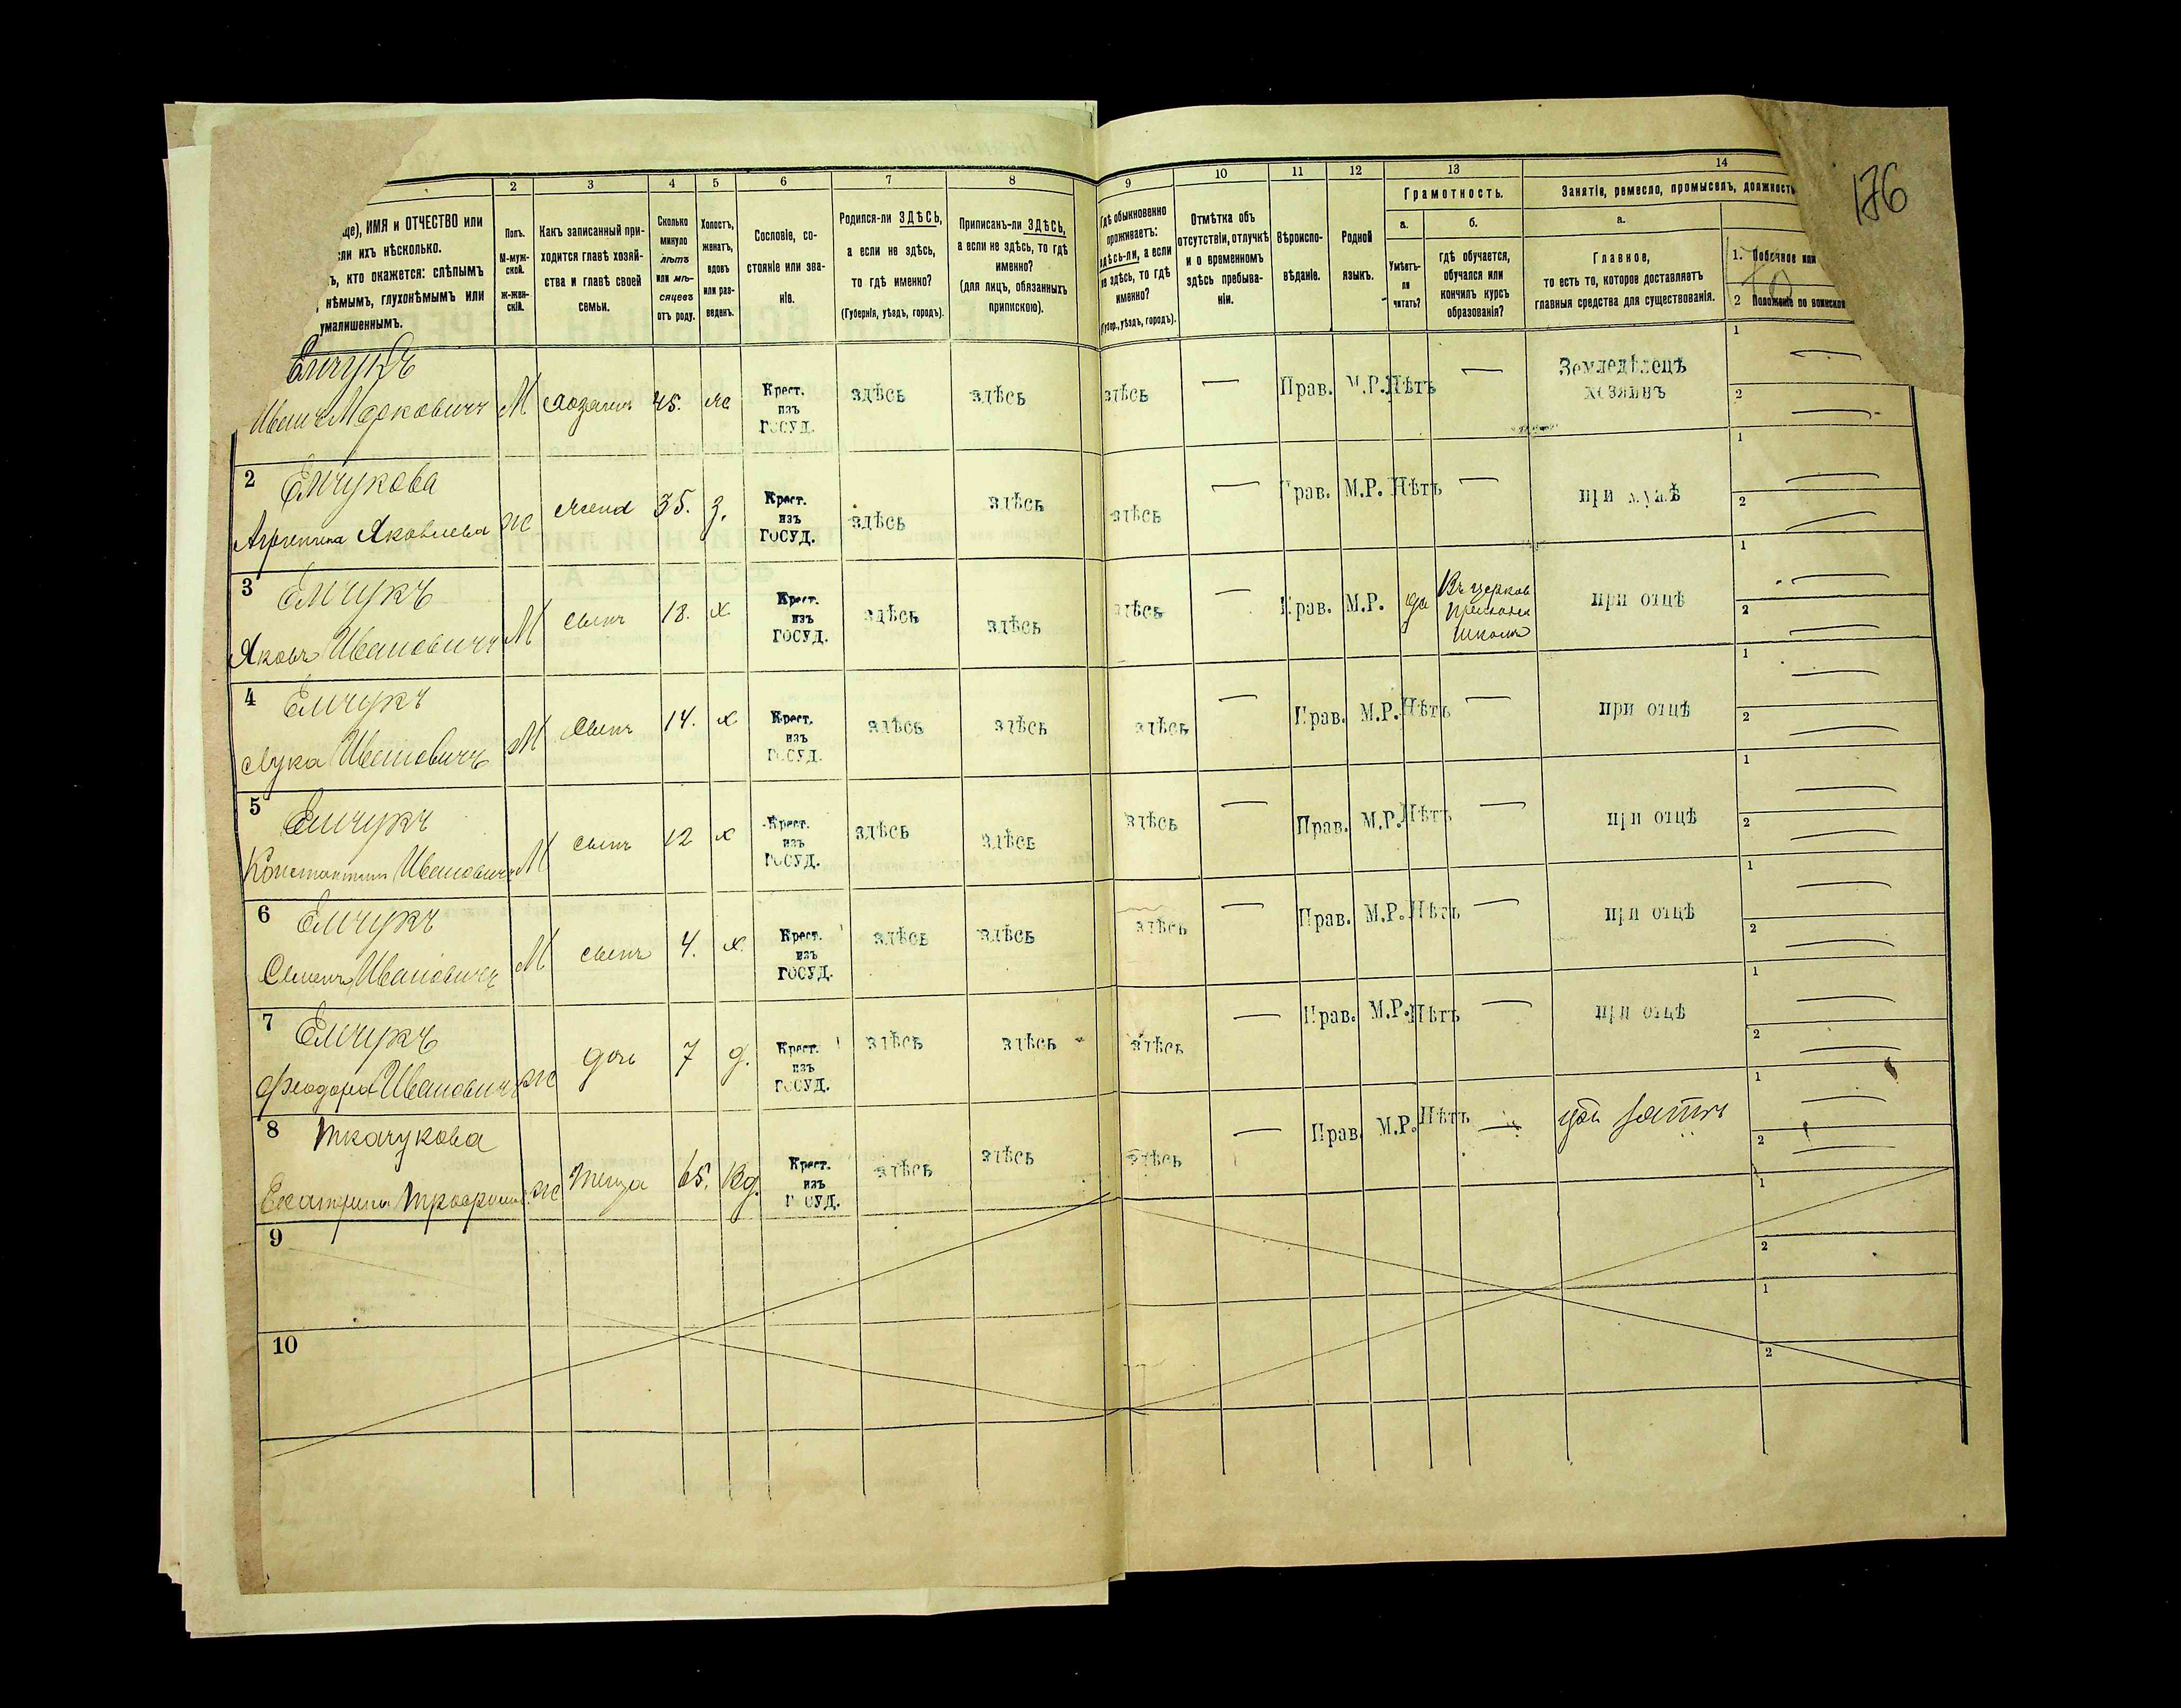 176
2 3 4 5 6 7 8 9 10 11 12 13 14
ИМЯ и ОТЧЕСТВО или
ихъ нѣсколько.
кто окажется: слѣпымъ
нѣмымъ, глухонѣмымъ или
умалишеннымъ.
Полъ.
М-муж-
ской.
ж-жен-
скій.
Какъ записанный при-
ходится главѣ хозяй-
ства и главѣ своей
семьи.
Сколько
минуло
лѣтъ
или мѣ-
сяцевъ
отъ роду.
Холостъ,
женатъ,
вдовъ
или раз-
веденъ.
Сословіе, со-
стояніе или зва-
ніе.
Родился-ли ЗДѢСЬ,
а если не здѣсь,
то гдѣ именно?
(Губернія, уѣздъ, городъ).
Приписанъ-ли ЗДѢСЬ,
а если не здѣсь, то гдѣ
именно?
(для лицъ, обязанныхъ
припискою).
Гдѣ обыкновенно
проживаетъ:
здѣсь-ли, а если
не здѣсь, то гдѣ
именно?
(Губер., уѣздъ, городъ).
Отмѣтка объ
отсутствіи, отлучкѣ
и о временномъ
здѣсь пребыва-
ніи.
Вѣроиспо-
вѣданіе.
Родной
языкъ.
Грамотность.
а.
Умѣетъ-
ли
читать?
б.
гдѣ обучается,
обучался или
кончилъ курсъ
образованія?
Занятіе, ремесло, промыселъ, должность
а.
Главное,
то есть то, которое доставляетъ
главныя средства для существованія.
1. Побочное или
2 Положеніе по воинской
Емчукъ
Иванъ Марковичъ М хозяинъ 45. ж Крест. изъ ГОСУД. здѣсь здѣсь здѣсь — Прав. М.Р. Нѣтъ — Земледѣлецъ хозяинъ 1 — 2 —
2 Емчукова
Агрипина Яковлева ж жена 35. з. Крест. изъ ГОСУД. здѣсь здѣсь здѣсь — Прав. М.Р. Нѣтъ — при мужѣ 1 — 2 —
3 Емчукъ
Яковъ Ивановичъ М сынъ 18. х Крест. изъ ГОСУД. здѣсь здѣсь здѣсь — Прав. М.Р. да Въ церков школѣ при отцѣ 1 — 2 —
4 Емчукъ
Лука Ивановичъ М сынъ 14. х Крест. изъ ГОСУД. здѣсь здѣсь здѣсь — Прав. М.Р. Нѣтъ — при отцѣ 1 — 2 —
5 Емчукъ
Константинъ Ивановичъ М сынъ 12 х Крест. изъ ГОСУД. здѣсь здѣсь здѣсь — Прав. М.Р. Нѣтъ — при отцѣ 1 — 2 —
6 Емчукъ
Семенъ Ивановичъ М сынъ 4. х Крест. изъ ГОСУД. здѣсь здѣсь здѣсь — Прав. М.Р. Нѣтъ — при отцѣ 1 — 2 —
7 Емчукъ
Феодора Ивановичъ ж дочь 7 д. Крест. изъ ГОСУД. здѣсь здѣсь здѣсь — Прав. М.Р. Нѣтъ — при отцѣ 1 — 2 —
8 Ткачукова
Екатерина ж теща 65. Вд. Крест. изъ ГОСУД. здѣсь здѣсь здѣсь — Прав. М.Р. Нѣтъ — при зятѣ 1 — 2 —
9 1 2
10 1 2